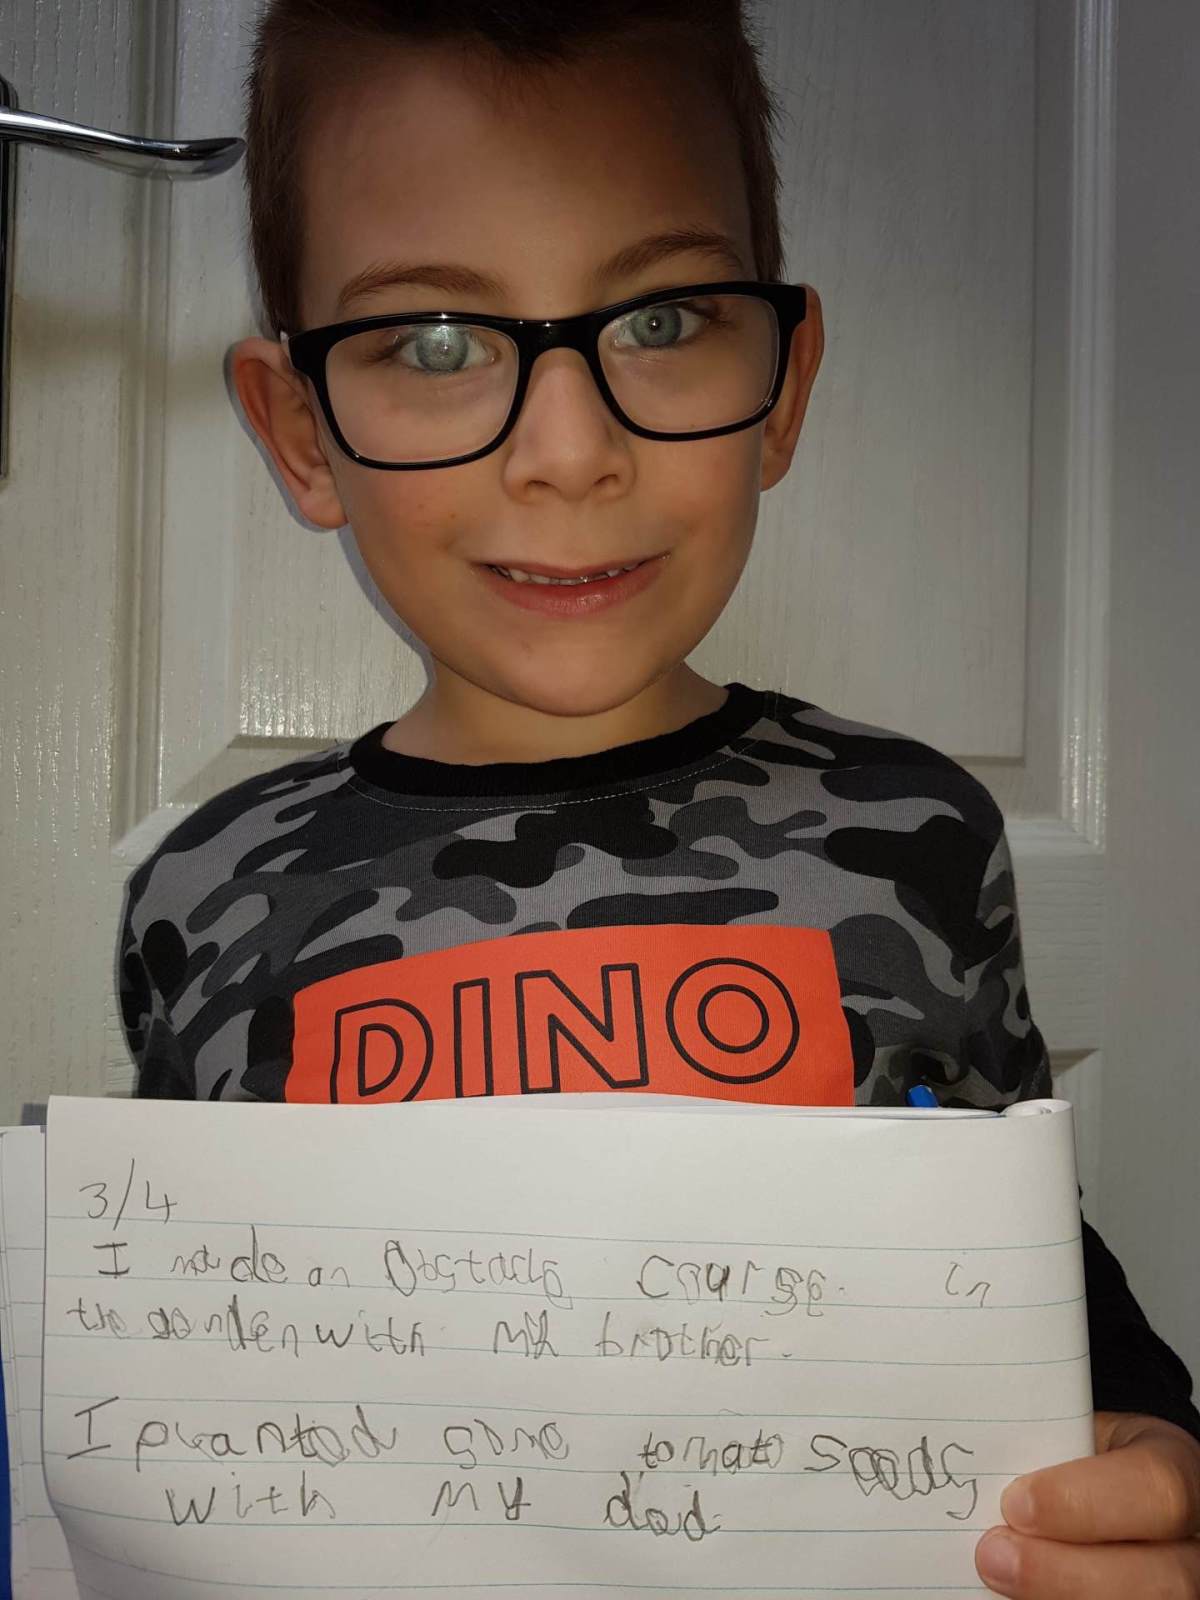 DINO
3/4
I made an Obstacle course. in
the garden with my brother.
I planted some tomato seeds
with my dad.